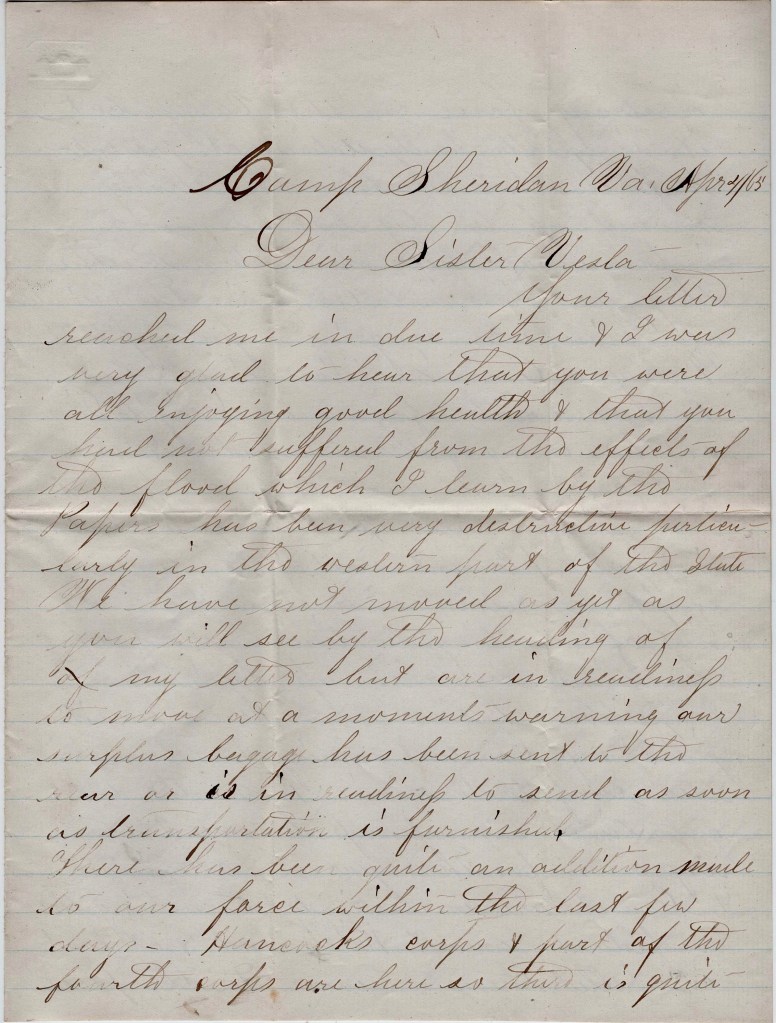 Camp Sheridan Va. Apr 2/65
Dear Sister Vesta
Your letter
reached me in due time & I was
very glad to hear that you were
all enjoying good health & that you
had not suffered from the effects of
the flood which I learn by the
Papers has been very destructive perticu-
larly in the western part of the State
We have not moved as yet as
you will see by the heading of
of my letter but are in readiness
to move at a moments warning our
surplus bagage has been sent to the
rear or is in readiness to send as soon
as transportation is furnished.
There has been quite an addition made
to our force within the last few
days - Hancocks corps & part of the
fourth corps are here so there is quite